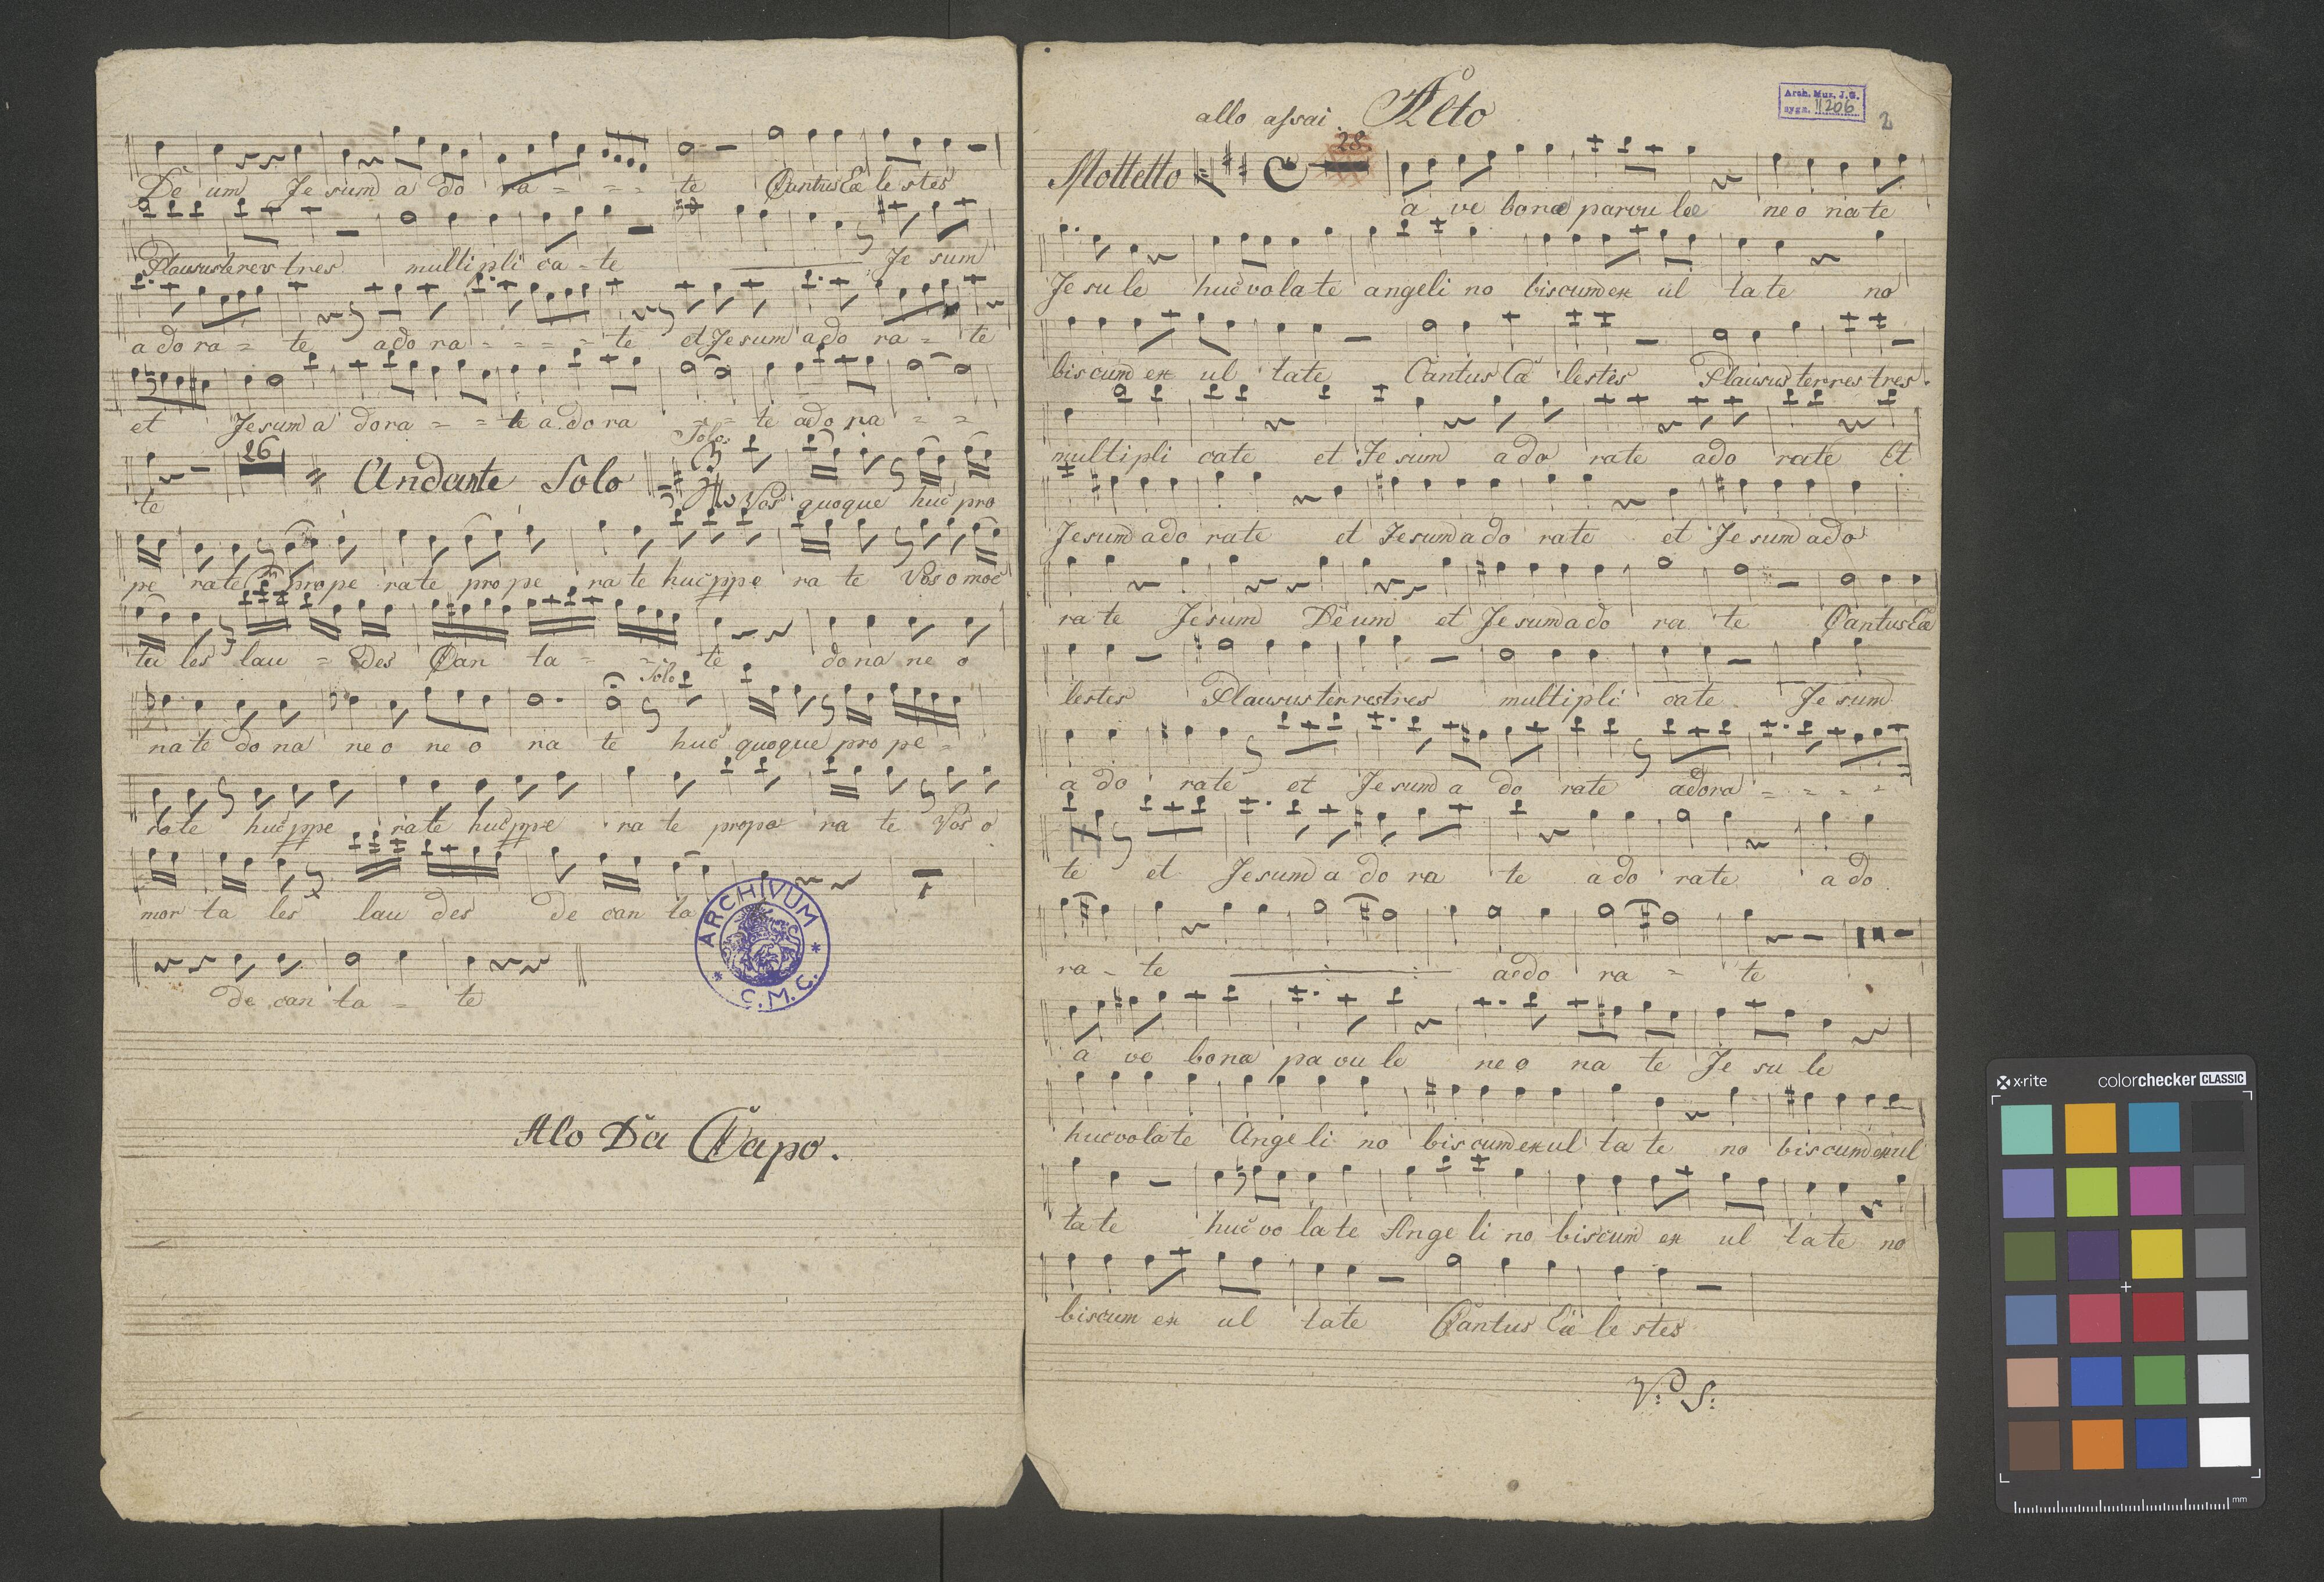 De um Je sum a do ra = = = te Cantus Cæ le stes
Plausus terres tres multi pli ca - te Je sum
a do ra = te ado ra = = = = te et Jesum ado ra = te
et Jesum a dora = = te a do ra = = te ado ra = =
Solo
26
Andante Solo
te Vos quoque huc pro
pe rate prope rate prope ra te huc ppe ra te Vos o mor
ta les lau = des Can ta = = te dona ne o
Solo
nate dona neo neo na te huc quoque pro pe =
rate huc ppe rate huc ppe ra te prope ra te Vos o
mor ta les lau des de can ta
ARCHIVUM
* C.M.C. *
de can ta = te
Alo Da Capo.
Arch. Muz. J.G.
sygn. II 206
2
allo assai Alto
28
Mottetto
a ve bone parvu le neo nate
Jesule huc volate angeli no biscum ex ul tate no
biscum ex ul tate Cantus Cæ lestes Plausus terres tres.
multipli cate et Jesum ado rate ado rate Et
Jesum ado rate et Jesum ado rate et Jesum ado
rate Jesum Deum et Jesum ado ra te Cantus Cæ
lestes Plausus terrestres multipli cate Jesum
a do rate et Jesum a do rate adora = = = =
te et Jesum a do ra te ado rate ado
ra - te ado ra = te
a ve bona pa vu le neo na te Je su le
huc volate Ange li no biscum exul ta te no biscum exul
tate huc vo late Ange li no biscum ex ul tate no
biscum ex ul tate Cantus Cæ le stes
V: S:
x-rite colorchecker CLASSIC
mm